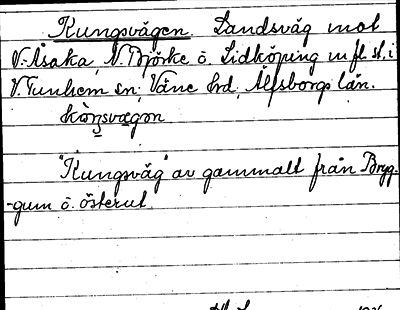 Kungsvägen. Landsväg mot
V. Åsaka, N. Björke o. Lidköping m fl st. i
V. Tunhem sn, Väne hd, Älfsborgs län.
kòŋsvægən
"Kungsväg" av gammalt från Bryg-
-gum o. österut.